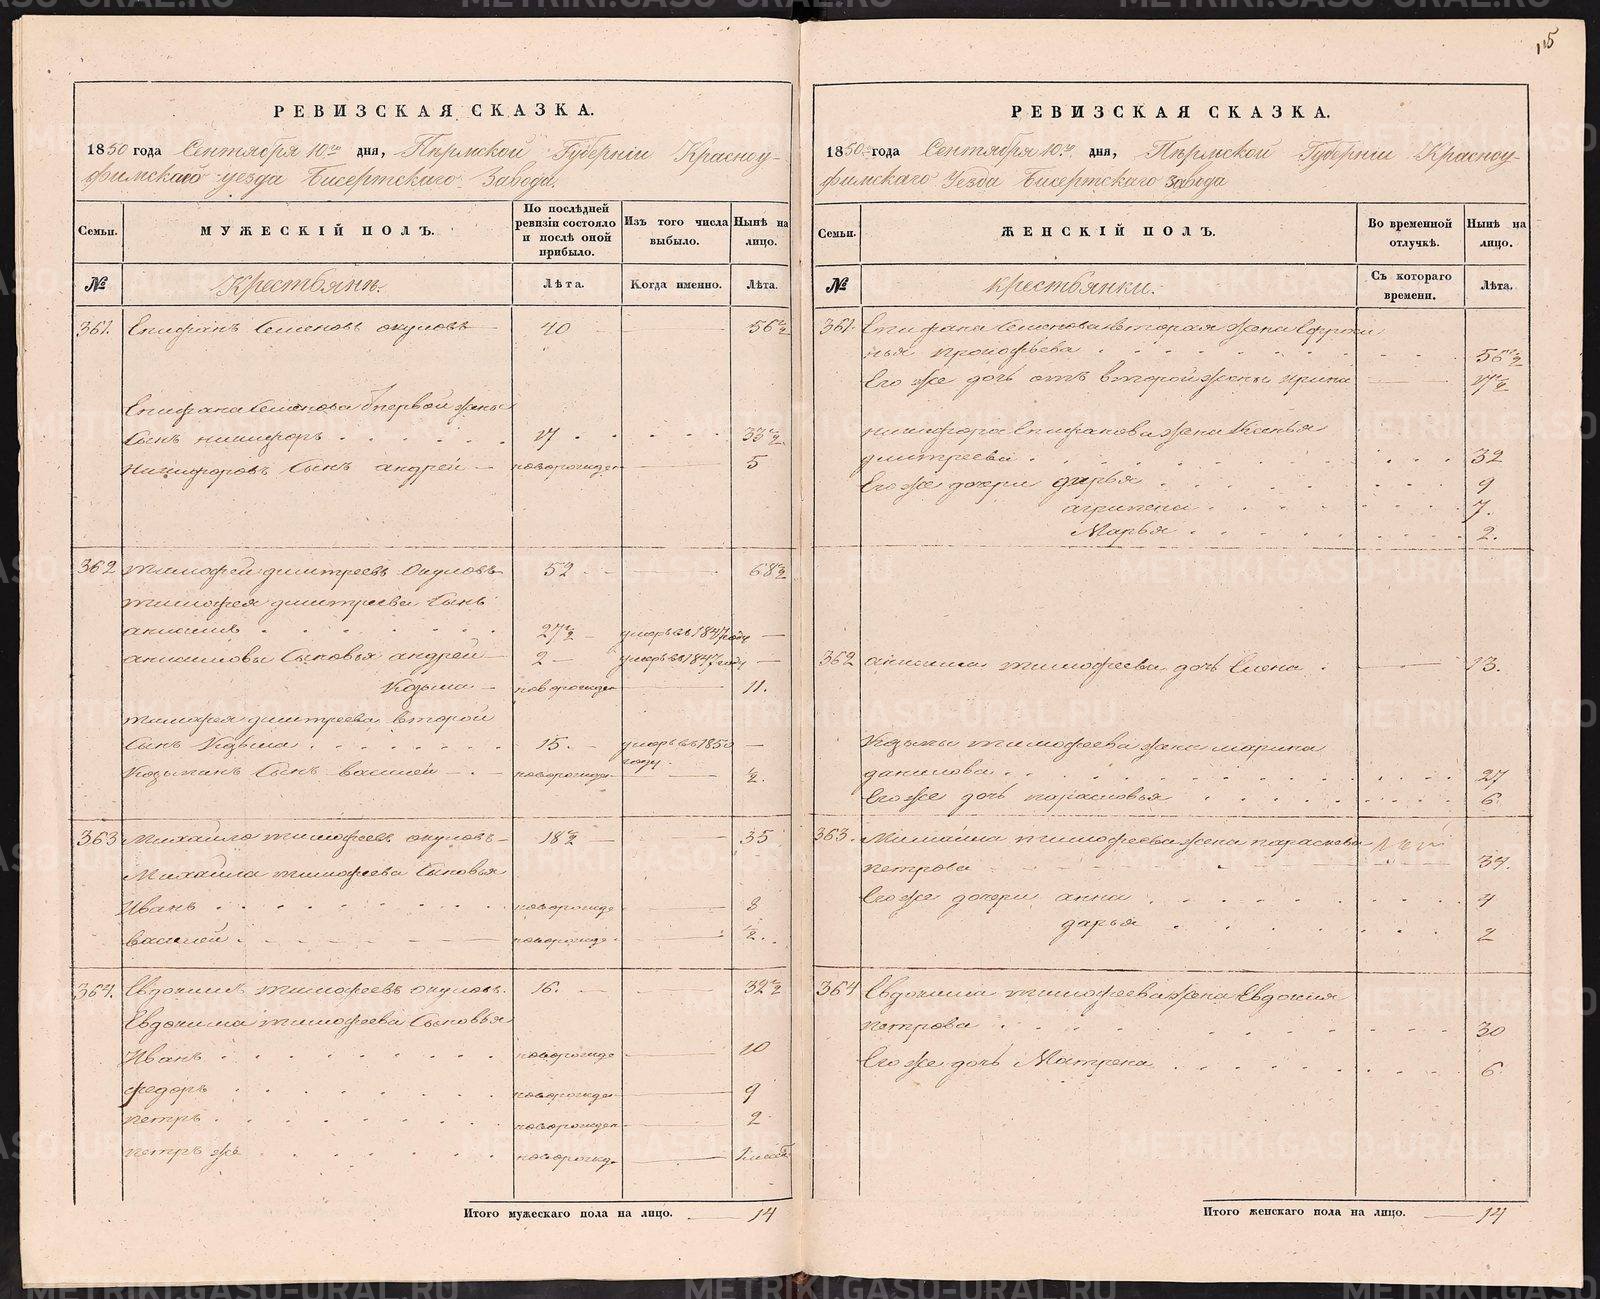 115
РЕВИЗСКАЯ СКАЗКА.
1850 года Сентября 10го дня, Пермской Губерніи Красноу-
фимскаго уезда Бисертскаго Завода.
Семьи.
МУЖЕСКІЙ ПОЛЪ.
По послѣдней ревизіи состояло и послѣ оной прибыло.
Изъ того числа выбыло.
Нынѣ на лицо.
№
Крестьянъ.
Лѣта.
Когда именно.
Лѣта.
361. Епифанъ Семеновъ окуловъ 40 56 1/2
Епифана Семенова первой жены
Сынъ никифоръ 17 33 1/2
Никифоровъ Сынъ андрей новорожден 5
362 тимофей дмитреевъ Окуловъ 52 68 1/2
тимофея дмитриева Сынъ
анисимъ 27 1/2 умеръ въ 1847 году
анисимовы Сыновья андрей 2 умеръ въ 1847 году
Козьма новорожден 11.
тимофея дмитреева второй
Сынъ Козьма 15. умеръ въ 1850 году
Козьминъ Сынъ василей новорожде 1/2.
363 Михайло тимофеевъ окуловъ 18 1/2 35
Михайла тимофеева Сыновья
Иванъ новорожде 8
василей новорожде 1/2.
364. Евдокимъ тимофеевъ окуловъ 16. 32 1/2
Евдокима тимофеева Сыновья
Иванъ новорожде 10
федоръ новорожде 9
петръ новорожден 2
петръ же новорожд.
Итого мужескаго пола на лицо. 14
РЕВИЗСКАЯ СКАЗКА.
1850 года Сентября 10го дня, Пермской Губерніи Красноу-
фимскаго Уезда Бисертскаго завода
Семьи.
ЖЕНСКІЙ ПОЛЪ.
Во временной отлучкѣ.
Нынѣ на лицо.
№
Крестьянки.
Съ котораго времени.
Лѣта.
361. Епифана Семенова вторая жена Ефроси
нья прокофьева 56 1/2
Его же дочь отъ второй жены ирина 17 1/2
никифора Епифанова жена Ксенья
дмитреева 32
Его же дочери дарья 9
агрипена 7.
Марья 2.
362 анисима тимофеева дочь Елена 13.
Козьмы тимофеева жена марина
данилова 27
Его же дочь парасковья 6
363. Михайла тимофеева жена параскева
петрова 34.
Его же дочери анна 4
дарья 2
364 Евдокима тимофеева жена Евдокия
петрова 30
Его же дочь Матрена 6
Итого женскаго пола на лицо. 14
METRIKI.GASO-URAL.RU